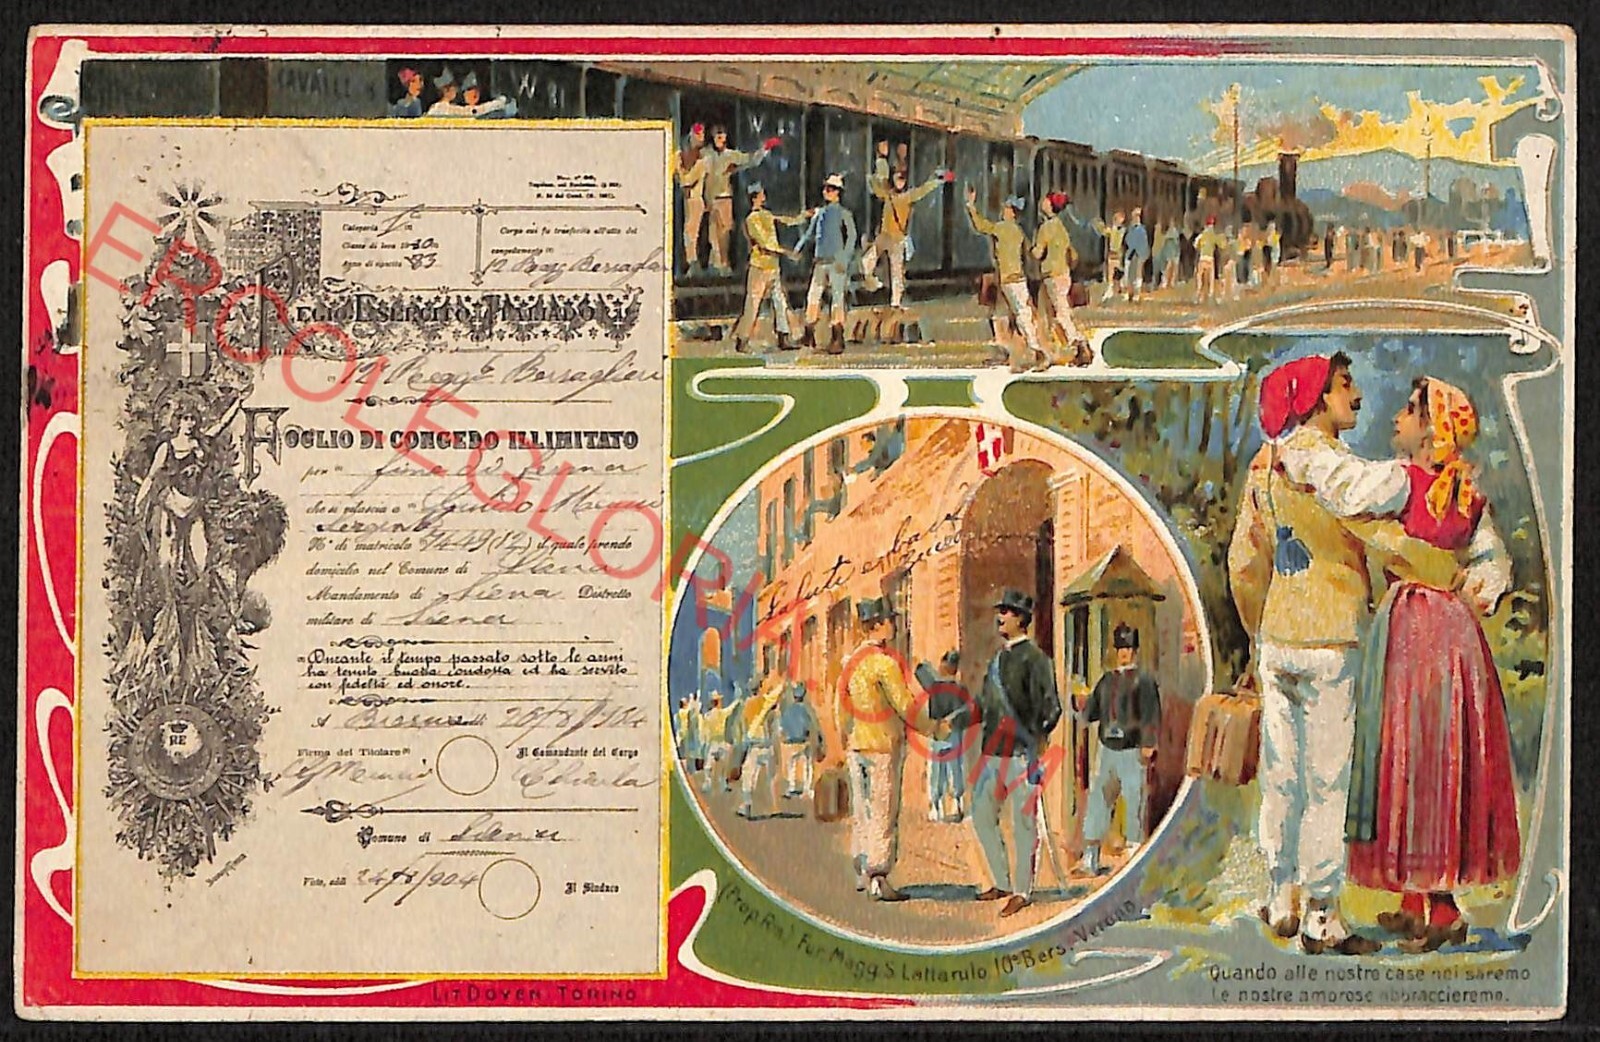 CAVALLI 8
Categoria I
Classe di leva 1880
83
Corpo cui fu trasferito all'atto del
12 Regg Bersaglieri
REGIO ESERCITO ITALIANO
12° Reggto Bersaglieri
FOGLIO DI CONGEDO ILLIMITATO
per fine di ferma
che si rilascia a
N° di matricola 7449 (12) il quale prende
domicilio nel Comune di Siena
Mandamento di Siena Distretto
militare di Siena
Durante il tempo passato sotto le armi
ha tenuto buona condotta ed ha servito
con fedeltà ed onore.
A
Firma del Titolare
Il Comandante del Corpo
Comune di Siena
Visto, addì 24/8/904
Il Sindaco
RE
Saluti e baci
(Prop. Ris.) Fur. Magg. S. Lattarulo 10° Bers. Verona
Quando alle nostre case noi saremo
le nostre amorose abbraccieremo.
LIT DOYEN TORINO
ERCOLEGLORIA.COM